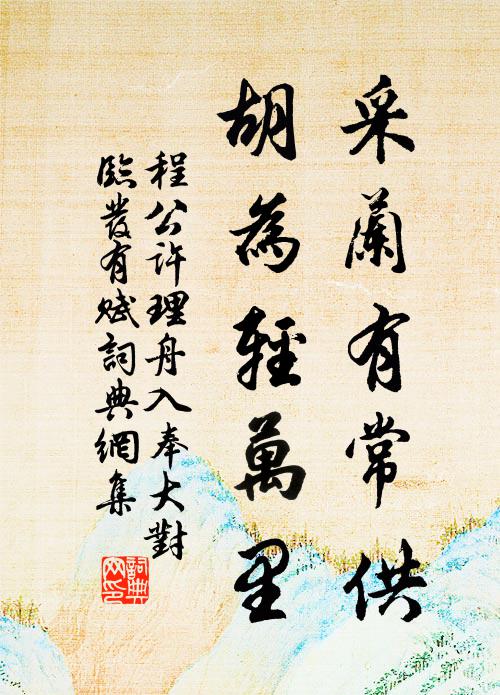 采蘭有常供
胡為輕萬里
程公許理舟入奉大對
臨發有賦詞典網集
詞典
网印